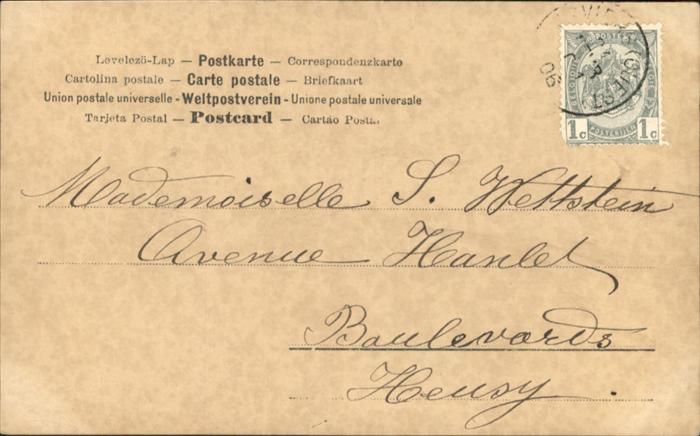 Levelezö-Lap — Postkarte — Correspondenzkarte
Cartolina postale — Carte postale — Briefkaart
Union postale universelle - Weltpostverein - Unione postale universale
Tarjeta Postal — Postcard — Cartão Postal
1c 1c
OUEST
06
Mademoiselle S. Wettstein
Avenue Hanlet
Boulevards
Heusy.